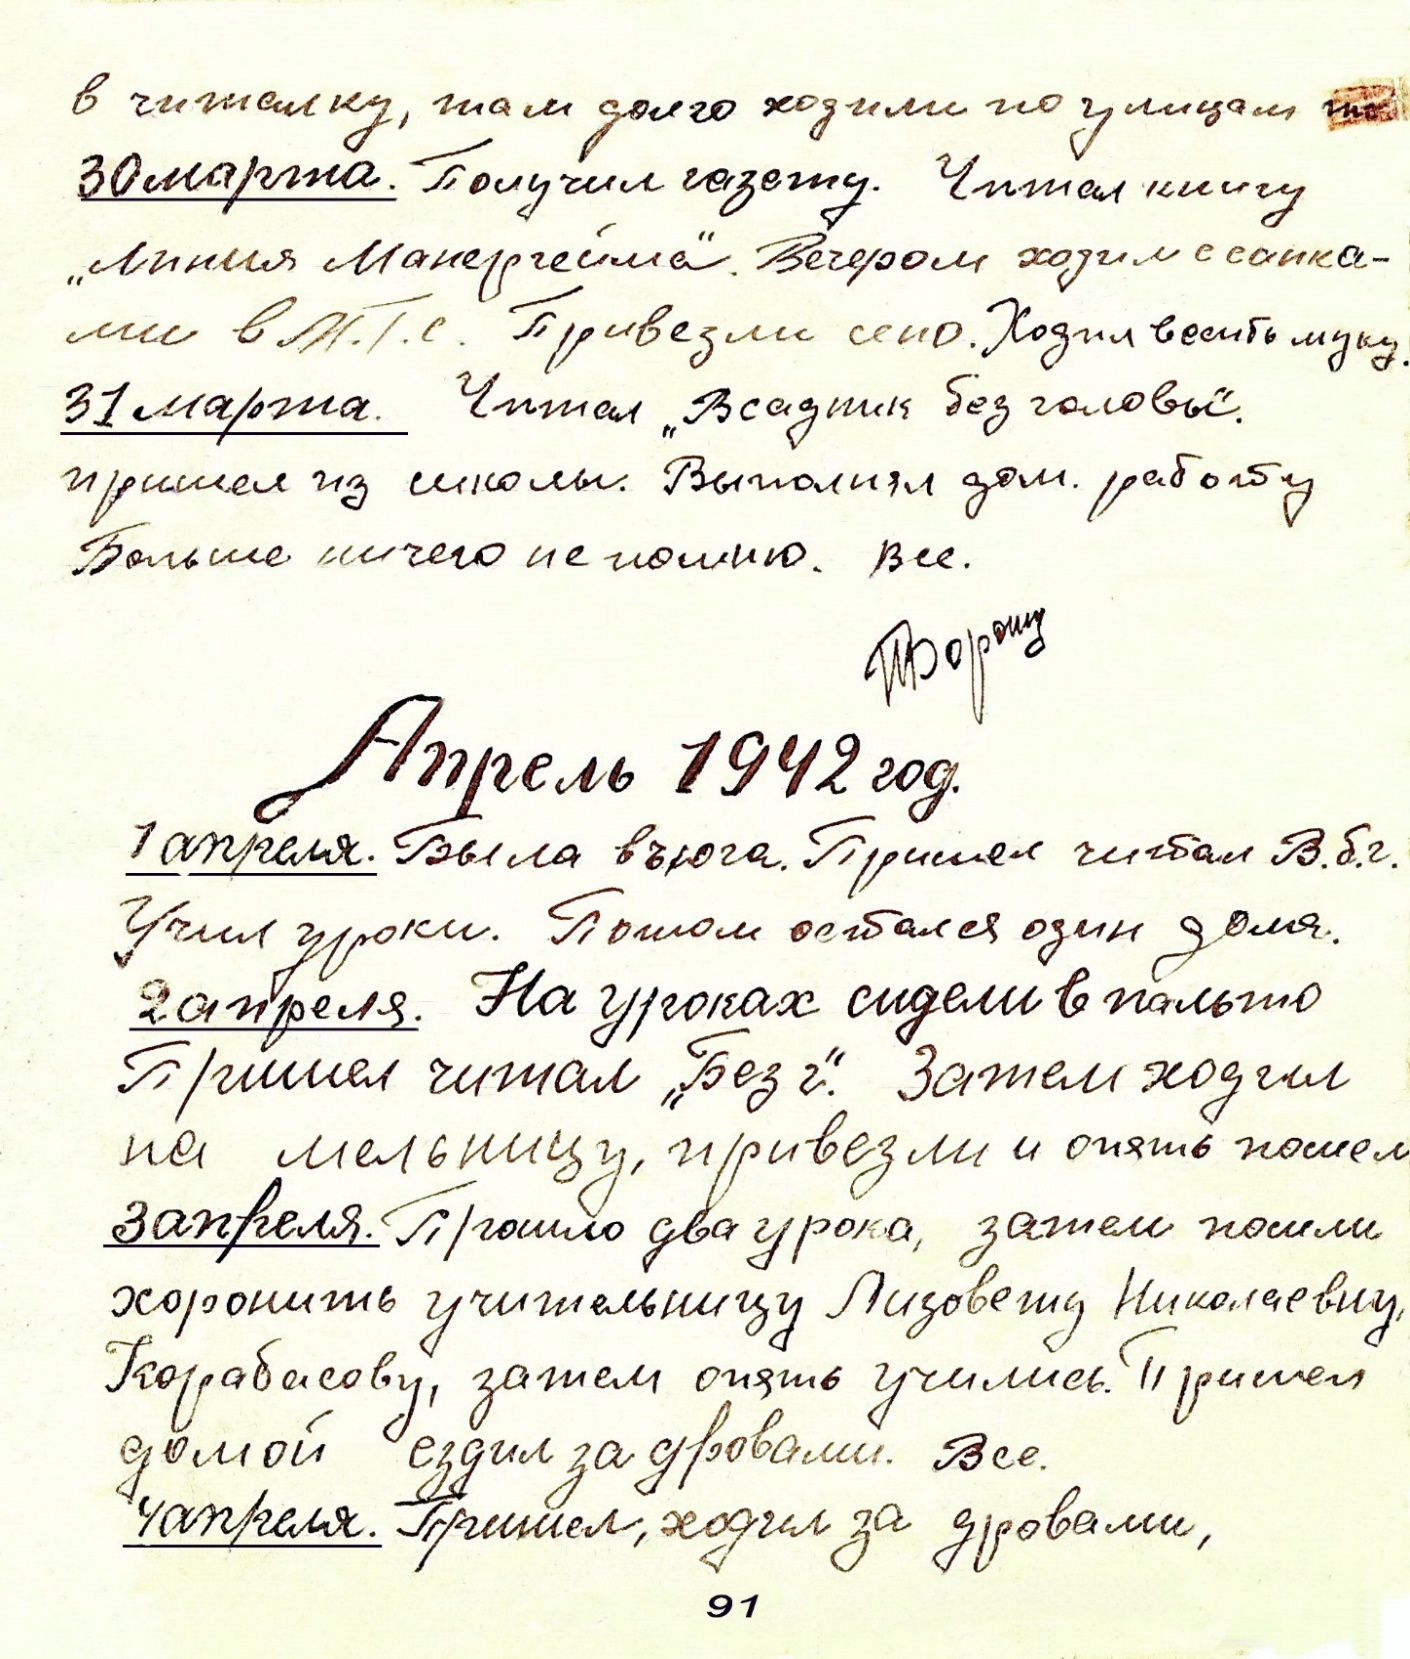 в читалку, там долго ходили по улицам
30 марта. Получил газету. Читал книгу
„Линия Манергейма“. Вечером ходил с санка-
ми в М.Т.С. Привезли сено. Ходил весить муку.
31 марта. Читал „Всадник без головы“.
пришел из школы. Выполнял дом. работу
Больше ничего не помню. Все.
Апрель 1942 год.
1 апреля. Была въюга. Пришел читал В.б.г.
Учил уроки. Потом остался один дома.
2 апреля. На уроках сидели в пальто
Пришел читал „Без г.“ Затем ходил
на мельницу, привезли и опять пошел
3 апреля. Прошло два урока, затем пошли
хоронить учительницу Лизовету Николаевну,
Корабасову, затем опять учились. Пришел
домой ездил за дровами. Все.
4 апреля. Пришел, ходил за дровами,
91